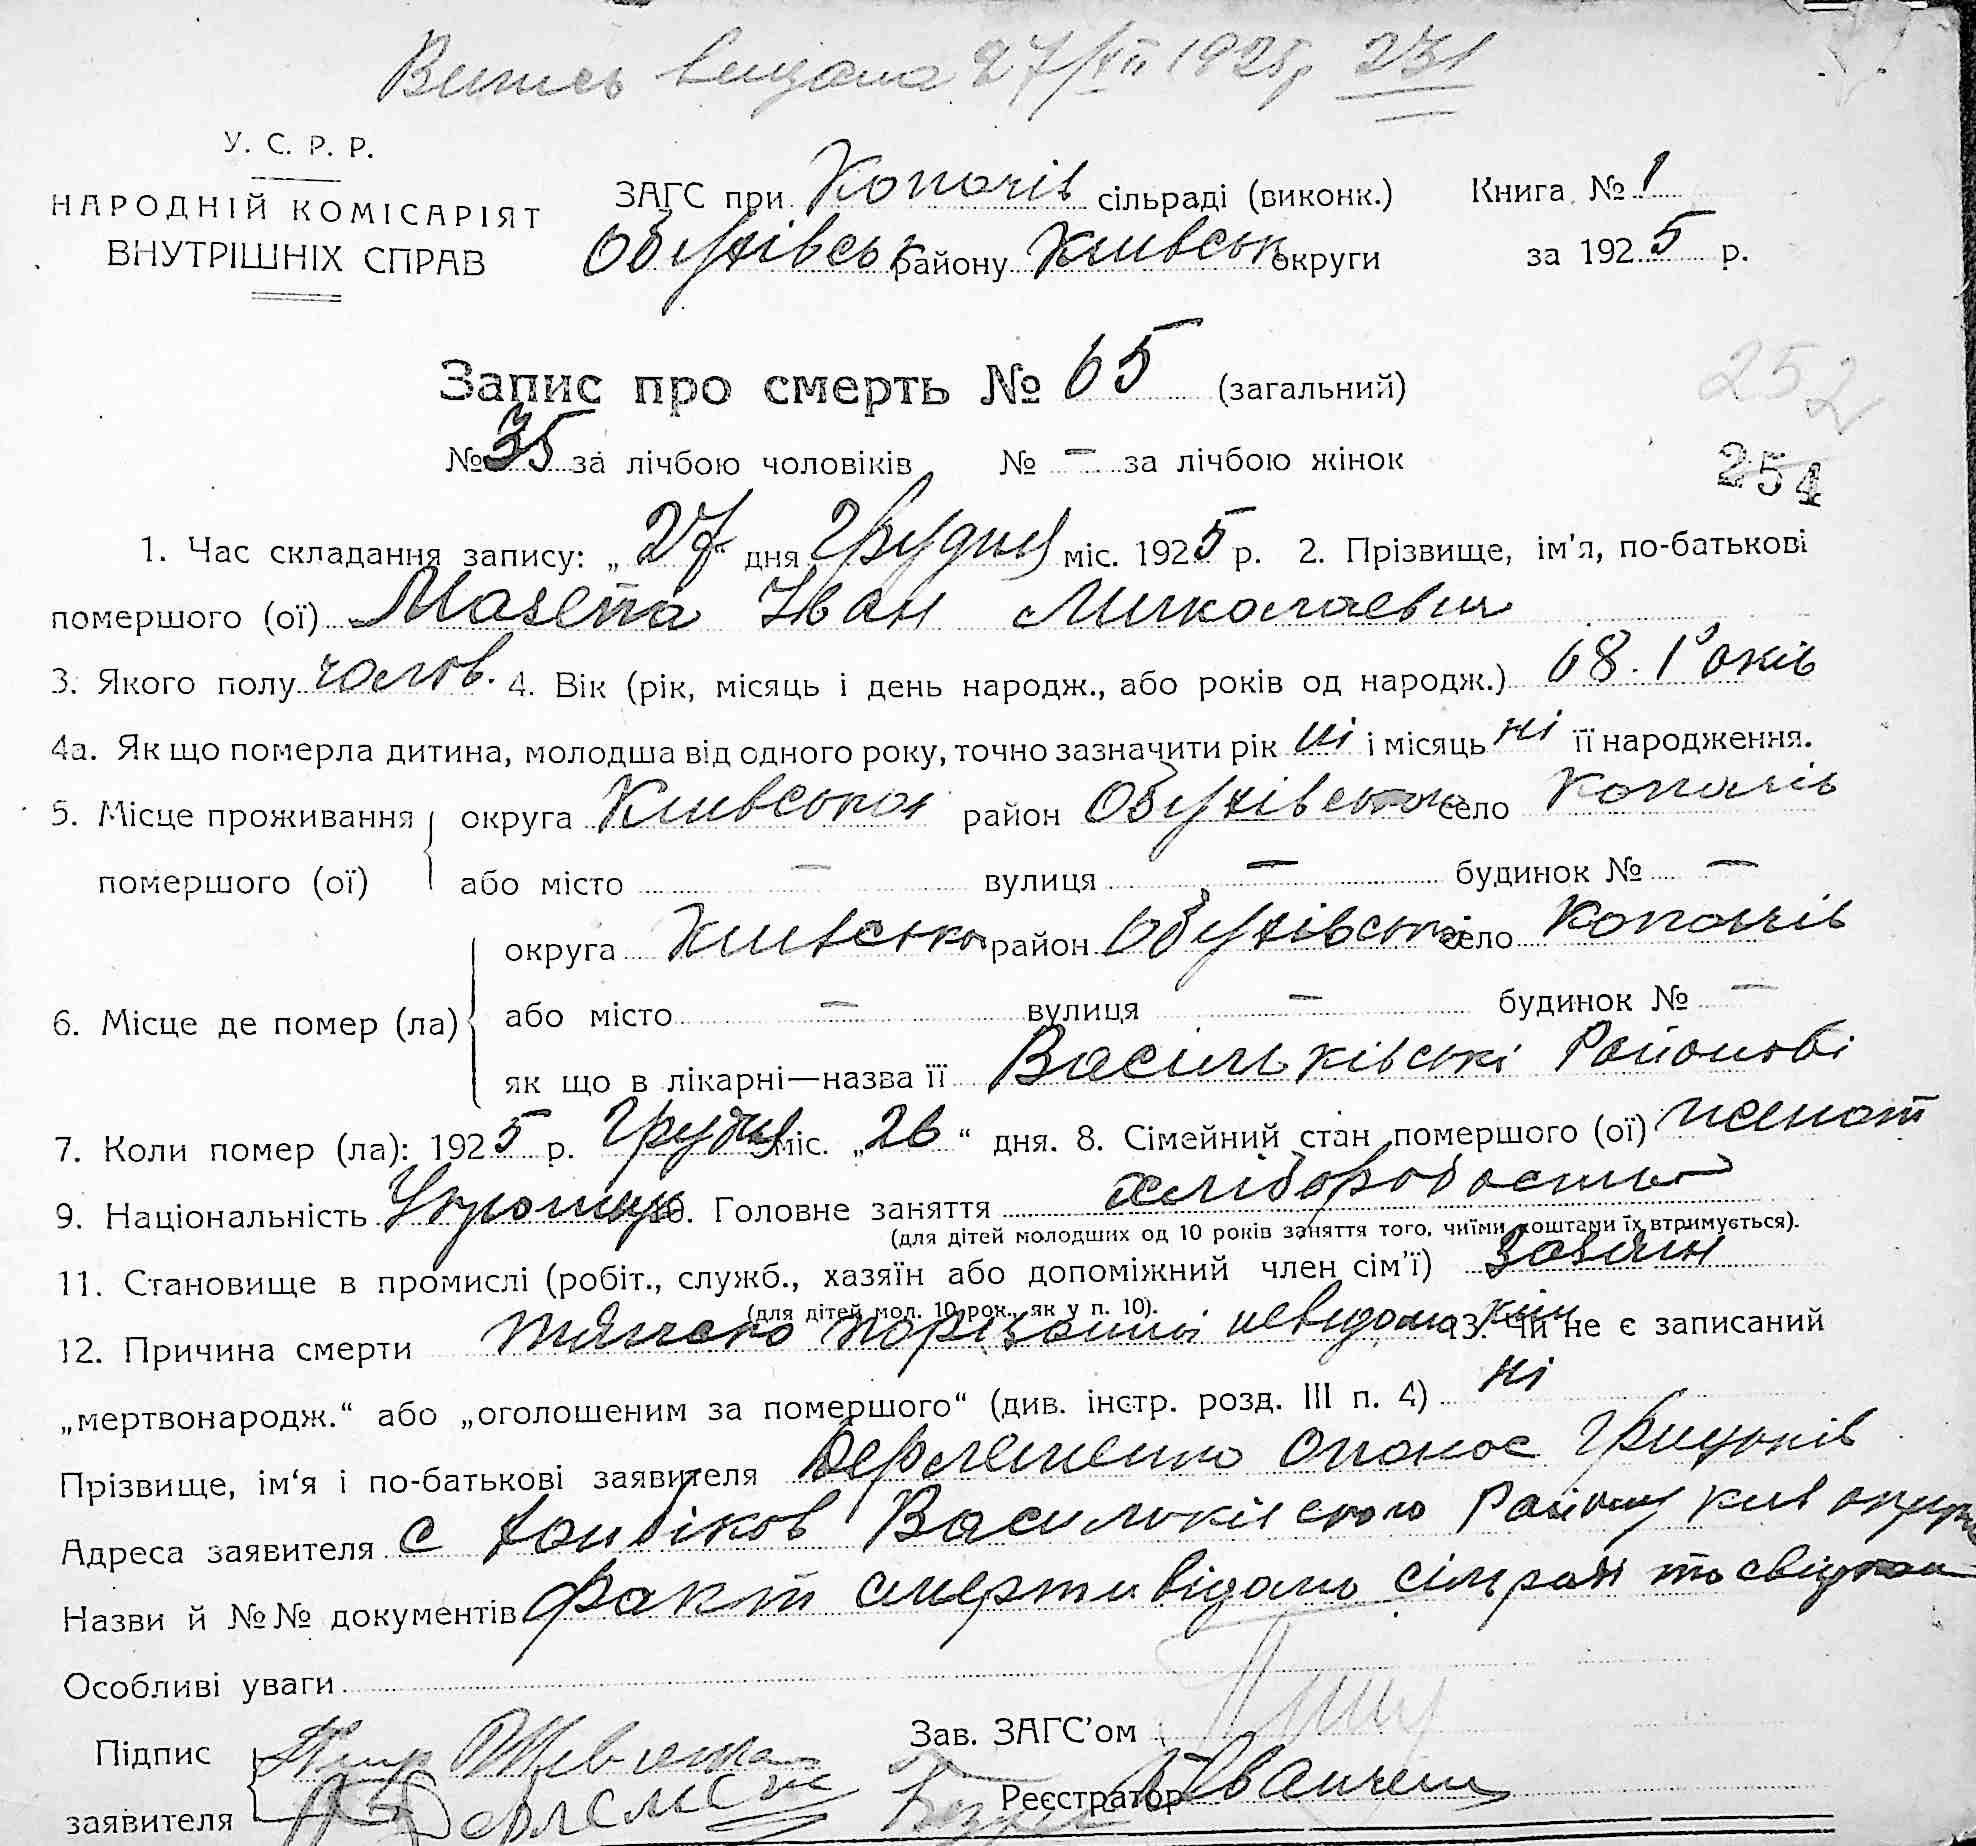 Витесь видана 27/XII 1925р 231
У. С. Р. Р.
НАРОДНІЙ КОМІСАРІЯТ
ВНУТРІШНІХ СПРАВ
ЗАГС при Копачів сільраді (виконк.) Книга № 1
Обухівськ району Київськ округи за 1925 р.
Запис про смерть № 65 (загальний)
252
№ 35 за лічбою чоловіків № — за лічбою жінок
254
1. Час складання запису: „27" дня Грудня міс. 1925 р. 2. Прізвище, ім'я, по-батькові
помершого (ої) Мазепа Іван Миколаевич
3. Якого полу чолов. 4. Вік (рік, місяць і день народж., або років од народж.) 68. Років
4а. Як що померла дитина, молодша від одного року, точно зазначити рік ні і місяць ні її народження.
5. Місце проживання помершого (ої) округа Київська район Обухівський село Копачів
або місто — вулиця — будинок № —
6. Місце де помер (ла) округа Київська район Обухівський село Копачів
або місто — вулиця — будинок № —
як що в лікарні—назва її Васильківські Районові
7. Коли помер (ла): 1925 р. Грудня міс. „26" дня. 8. Сімейний стан помершого (ої) женат
9. Національність 10. Головне заняття хліборобство
(для дітей молодших од 10 років заняття того, чиїми коштами їх втримується).
11. Становище в промислі (робіт., служб., хазяїн або допоміжний член сім'ї)
(для дітей мол. 10 рок., як у п. 10).
12. Причина смерти тяжело невідомо ким 13. Чи не є записаний
„мертвонародж." або „оголошеним за помершого" (див. інстр. розд. III п. 4) ні
Прізвище, ім'я і по-батькові заявителя Дерлеменко Опанас Грицьків
Адреса заявителя с Васильківского Району київ округи
Назви й №№ документів факт смерти відамо сільраді та свідкам
Особливі уваги
Зав. ЗАГС'ом
Підпис заявителя
Реєстратор Іванчен